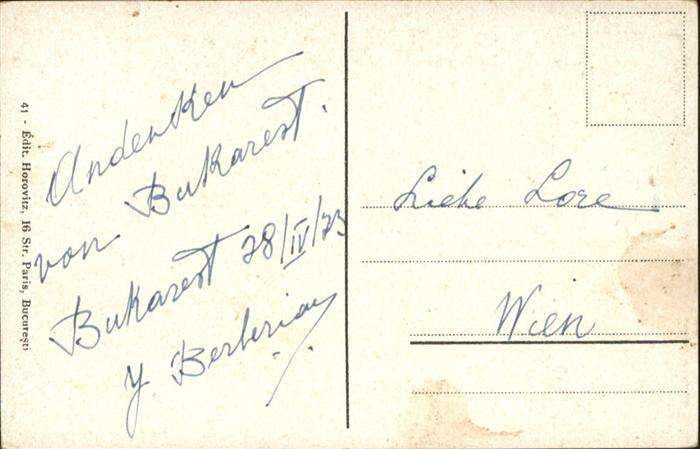 Andenken
von Bukarest.
Bukarest 28/IV/23
Y. Berberian
Liebe Lore
Wien
41 - Édit. Horovitz, 16 Str. Paris, București